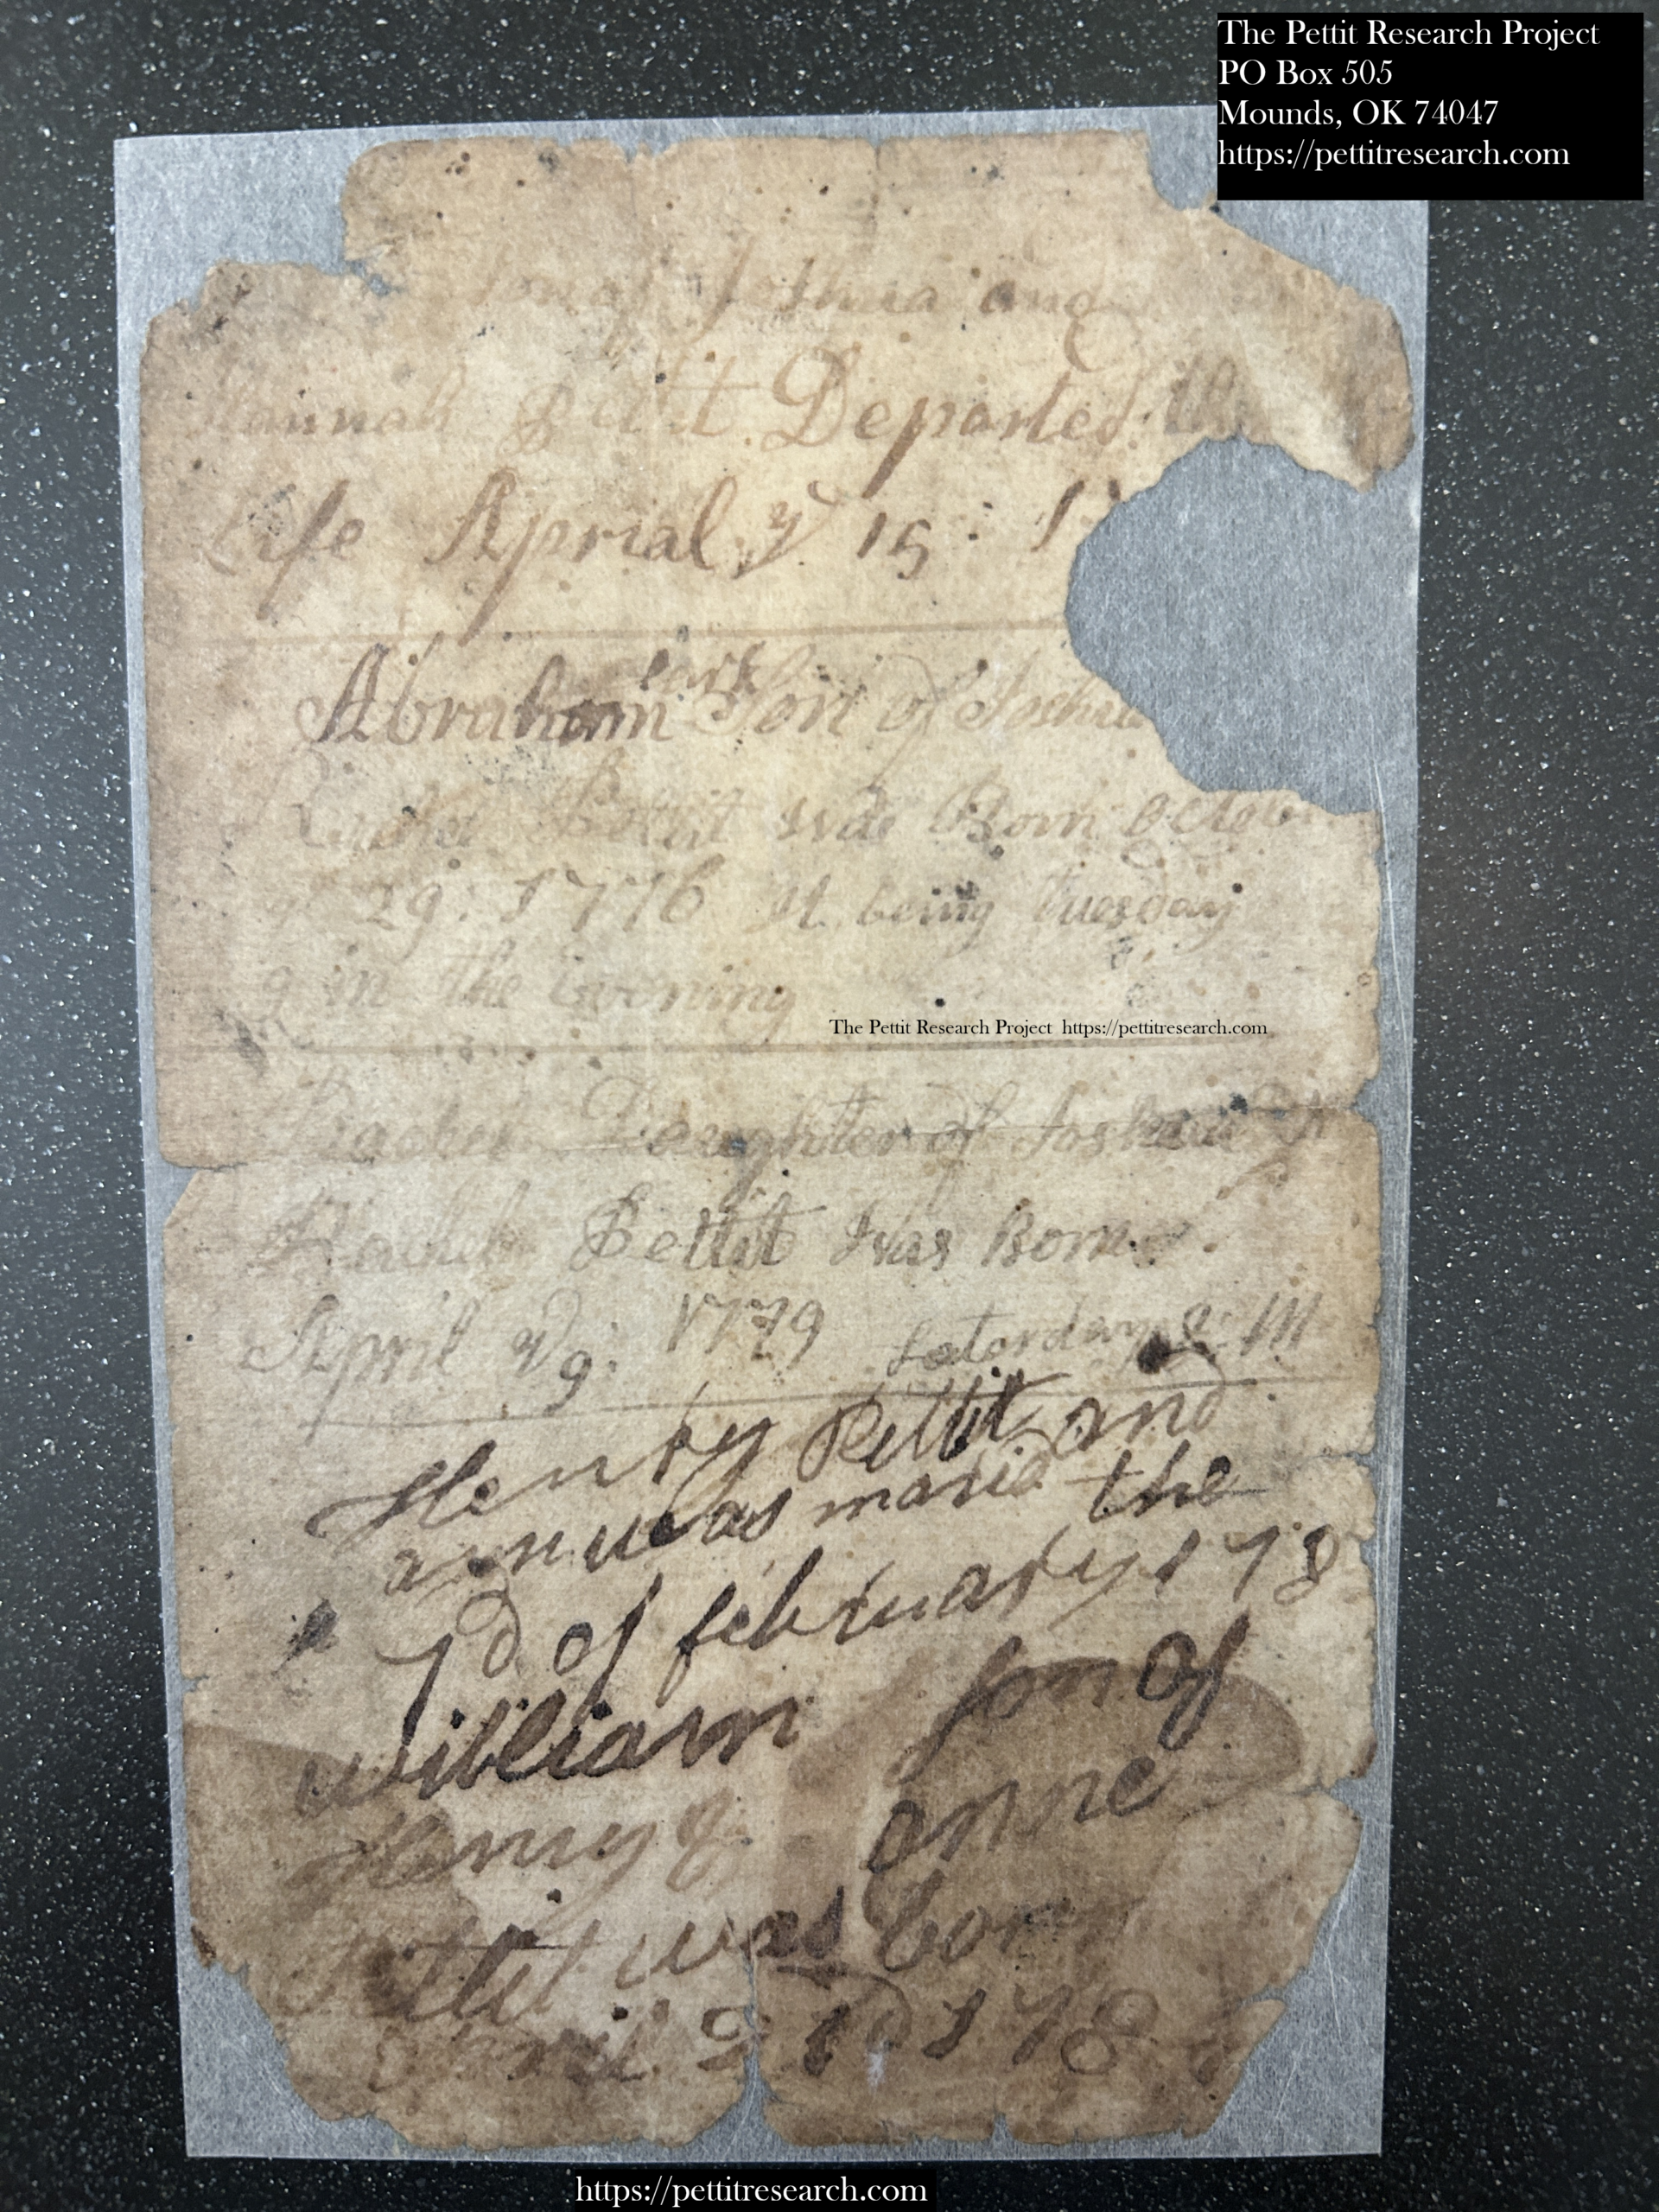 The Pettit Research Project
PO Box 505
Mounds, OK 74047
https://pettitresearch.com
Son of Joshua and
Hannah Pettit Departed th
Life Aprial ye 15: 1
Abraham Son of Joshua
Pettit was Born Octob
ye 29: 1776 It being tuesday
9 in the Evening
The Pettit Research Project https://pettitresearch.com
Rachel Daughter of Joshua &
Rachel Pettit Was Born
April 9: 1779 Satorday
Henry Pettit and
ann was maried the
7d of february 178
William son of
Henry & anne
Pettit was born
April 178
https://pettitresearch.com